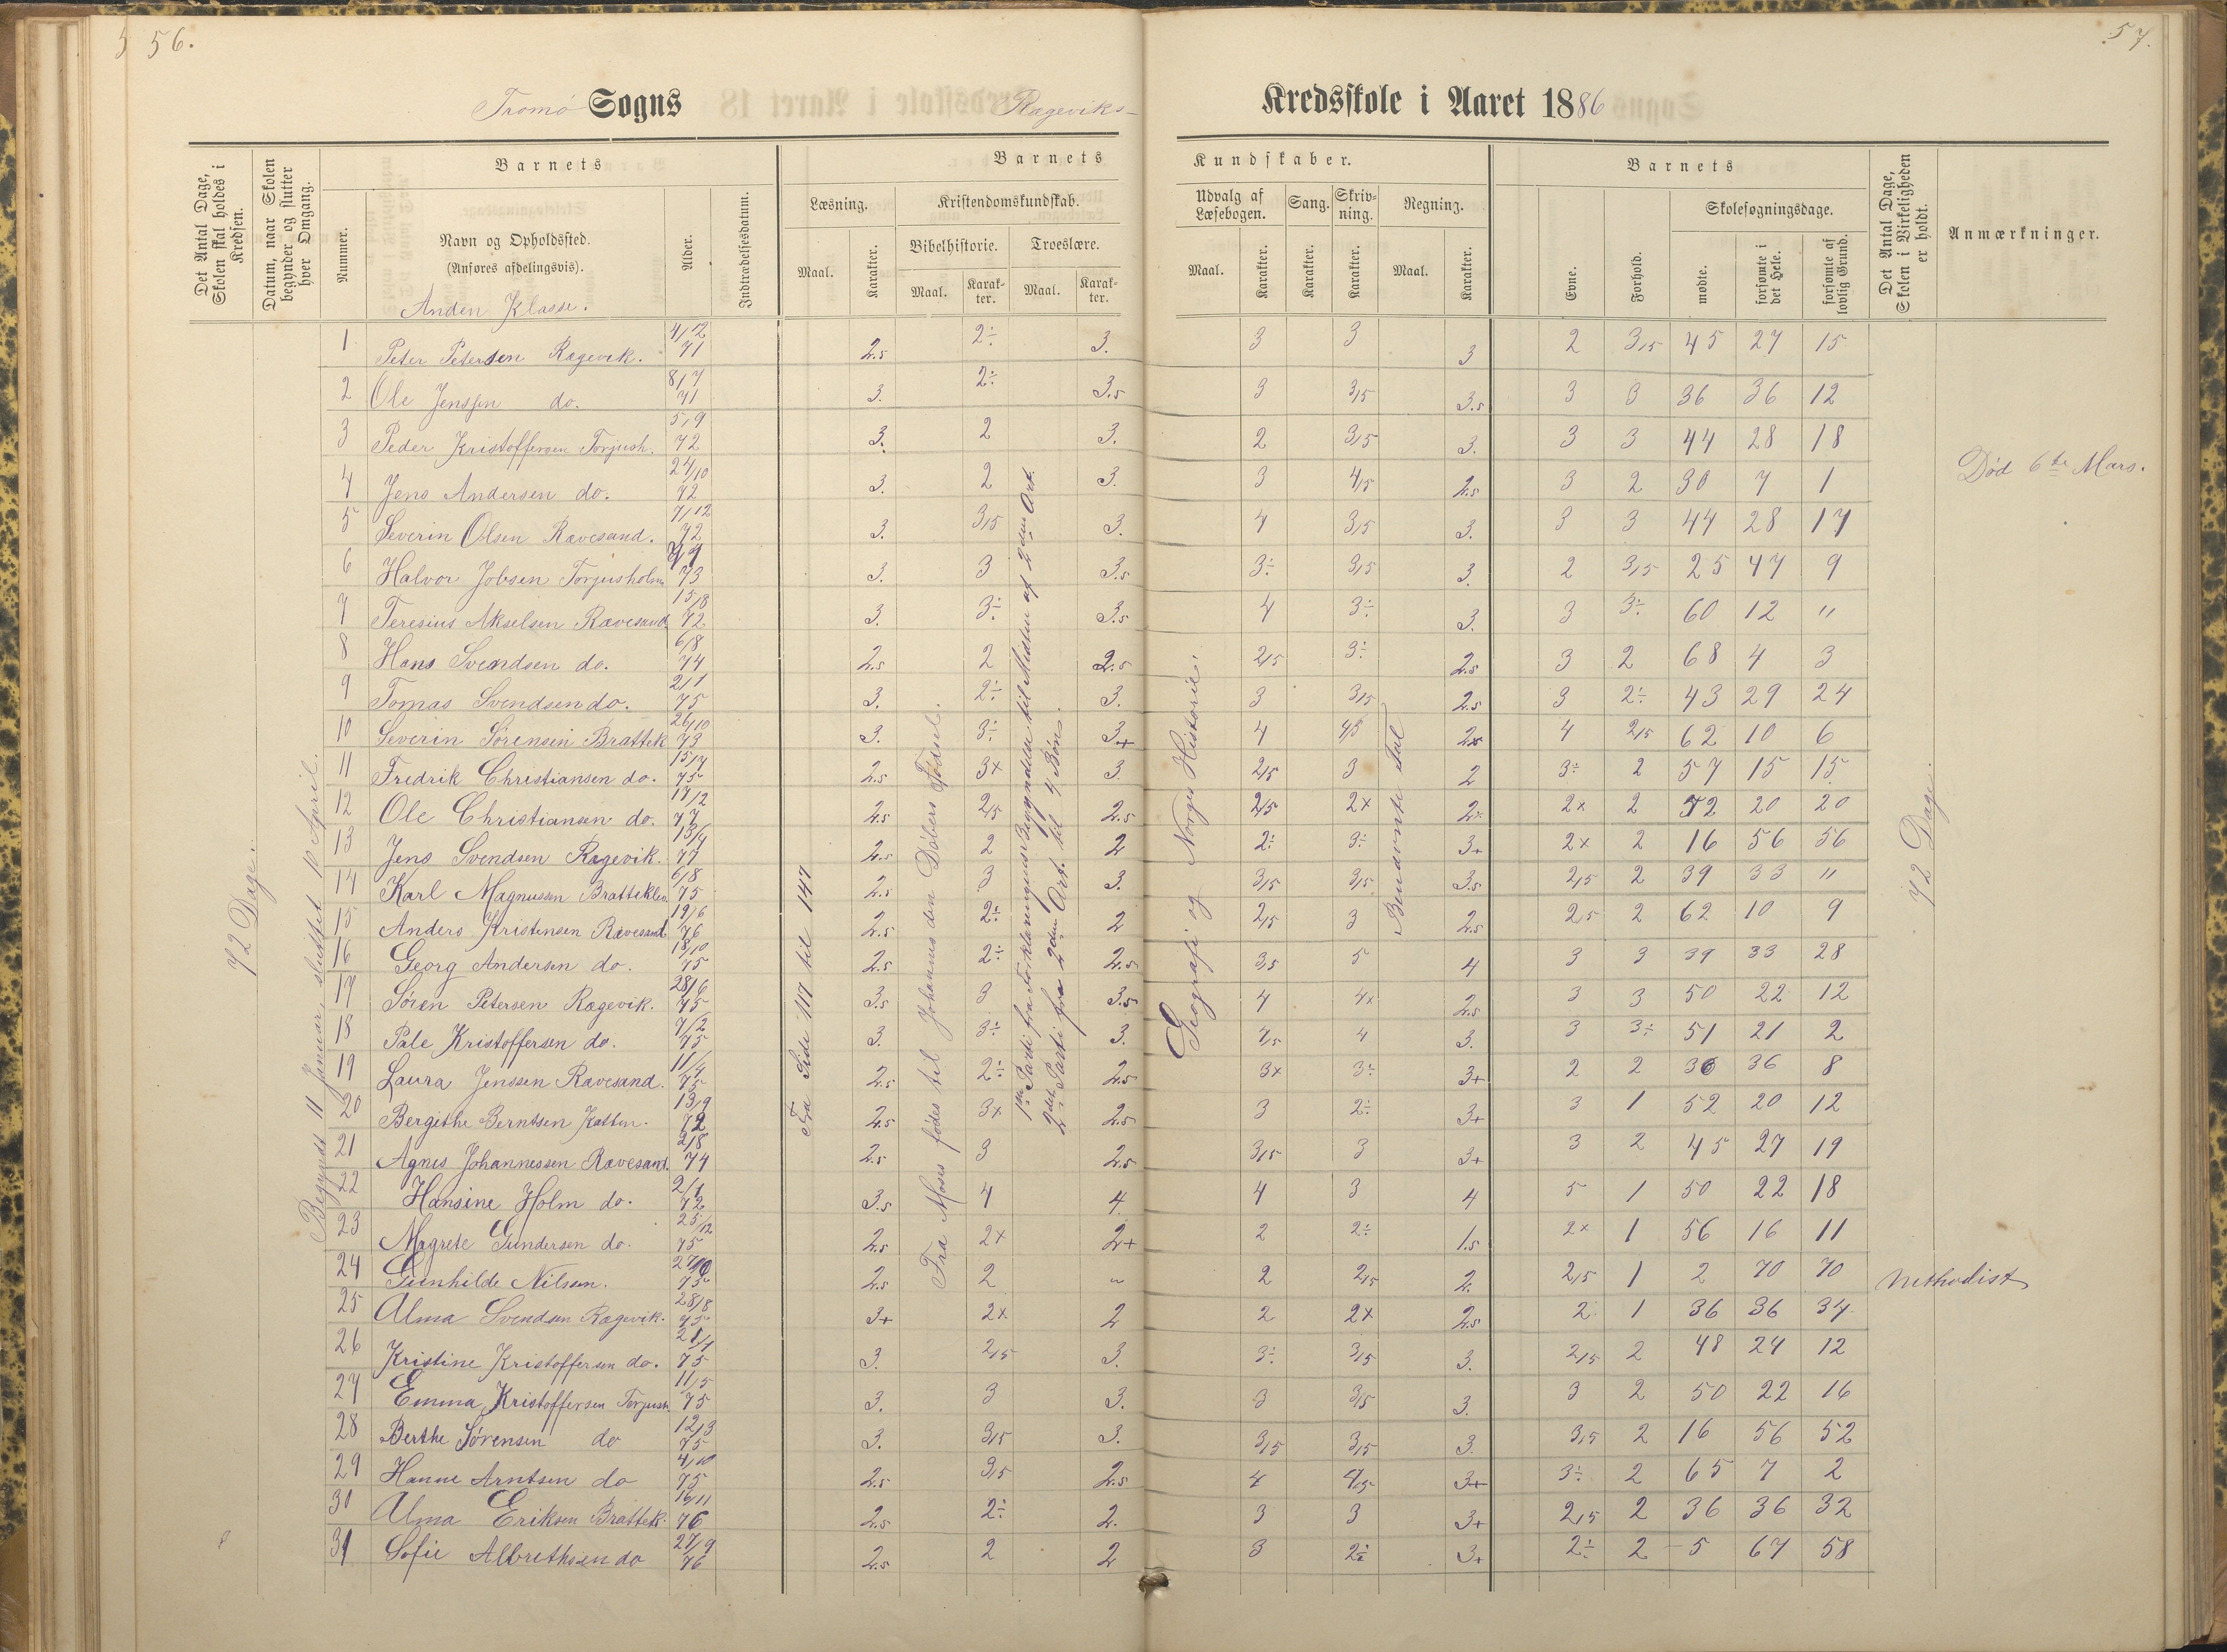 56.
57.
Tromø Sogns Rægeviks-
Kredsskole i Aaret 1886
Det Antal Dage, Skolen skal holdes i Kredsen.
Datum, naar Skolen begynder og slutter hver Omgang.
Barnets
Nummer.
Navn og Opholdssted.
(Anføres afdelingsvis).
Alder.
Indtrædelsesdatum.
Barnets Kundskaber.
Læsning.
Maal.
Karakter.
Kristendomskundskab.
Bibelhistorie.
Maal.
Karakter.
Troeslære.
Maal.
Karakter.
Udvalg af Læsebogen.
Maal.
Karakter.
Sang.
Karakter.
Skrivning.
Karakter.
Regning.
Maal.
Karakter.
Barnets
Evne.
Forhold.
Skolesøgningsdage.
mødte.
forsømte i det Hele.
forsømte af lovlig Grund.
Det Antal Dage, Skolen i Virkeligheden er holdt.
Anmærkninger.
Anden Klasse.
72 Dage.
Begyndt 11 Januar, sluttet 10 April.
Fra Side 117 til 147
Fra Moses fødes til Johannes den Døbers Fødsel.
1ste Parti fra Forklaringens Begyndelse til Midten af 2den Art.
2det Parti fra 2den Art. til 4 Bøn.
Geografi og Norges Historie.
Benævnte Tal
72 Dage.
1 Peter Petersen Rægevik. 4/12 71 2.5 2÷ 3. 3 3 3 2 3,5 45 27 15
2 Ole Jenssen do. 8/7 71 3. 2÷ 3.5 3 3,5 3.5 3 3 36 36 12
3 Peder Kristoffersen Torjush. 5/9 72 3. 2 3. 2 3,5 3. 3 3 44 28 18
4 Jens Andersen do. 24/10 72 3. 2 3. 3 4,5 2.5 3 2 30 7 1 Død 6te Mars.
5 Severin Olsen Rævesand. 7/12 72 3. 3,5 3. 4 3,5 3. 3 3 44 28 17
6 Halvor Jobsen Torjusholm 73 3. 3 3.5 3÷ 3,5 3. 2 3,5 25 47 9
7 Teresius Akselsen Rævesand 15/8 72 3. 3÷ 3.5 4 3÷ 3. 3 3÷ 60 12 "
8 Hans Svendsen do. 6/8 74 2.5 2 2.5 2,5 3÷ 2.5 3 2 68 4 3
9 Tomas Svendsen do. 2/1 75 3. 2÷ 3. 3 3,5 2.5 3 2÷ 43 29 24
10 Severin Sørensen Brattek 26/10 73 3. 3÷ 3+ 4 4,5 2x 4 2,5 62 10 6
11 Fredrik Christiansen do. 15/7 75 2.5 3x 3. 2,5 3 2 3÷ 2 57 15 15
12 Ole Christiansen do. 17/2 77 2.5 2,5 2.5 2,5 2x 2÷ 2x 2 72 20 20
13 Jens Svendsen Rægevik. 13/4 77 2.5 2 2 2÷ 3÷ 3+ 2x 2 16 56 56
14 Karl Magnussen Bratteklev 6/8 75 2.5 3 3. 3,5 3,5 3.5 2,5 2 39 33 "
15 Anders Kristensen Rævesand 19/6 76 2.5 2÷ 2 2,5 3 2.5 2,5 2 62 10 9
16 Georg Andersen do. 18/10 75 2.5 2÷ 2.5 3,5 5 4 3 3 39 33 28
17 Søren Petersen Rægevik. 28/6 75 3.5 3 3.5 4 4x 2.5 3 3 50 22 12
18 Pale Kristoffersen do. 7/2 75 3. 3÷ 3. 4,5 4 3. 3 3÷ 51 21 2
19 Laura Jenssen Rævesand. 11/4 75 2.5 2÷ 2.5 3x 3÷ 3+ 2 2 36 36 8
20 Bergithe Berntsen 13/9 72 2.5 3x 2.5 3 2÷ 3+ 3 1 52 20 12
21 Agnes Johannessen Rævesand. 2/8 74 2.5 3 2.5 3,5 3 3+ 3 2 45 27 19
22 Hansine Holm do. 2/1 72 3.5 4 4. 4 3 4 5 1 50 22 18
23 Magrete Gundersen do. 25/12 75 2.5 2x 2+ 2 2÷ 1.5 2x 1 56 16 11
24 Gunhilde Nilsen. 75 2.5 2 " 2 2,5 2. 2,5 1 2 70 70 Methodist
25 Alma Svendsen Rægevik. 28/8 75 3+ 2x 2 2 2x 2.5 2 1 36 36 34
26 Kristine Kristoffersen do. 21/1 75 3. 2,5 3. 3÷ 3,5 3. 2,5 2 48 24 12
27 Emma Kristoffersen Torjush 11/5 75 3. 3 3. 3 3,5 3. 3 2 50 22 16
28 Berthe Sørensen do 12/3 75 3. 3,5 3. 3,5 3,5 3. 3,5 2 16 56 52
29 Hanne Arntsen do 4/10 75 2.5 3,5 2.5 4 4,5 3+ 3÷ 2 65 7 2
30 Alma Eriksen Brattek. 16/11 76 2.5 2÷ 2. 3 3 3+ 2,5 2 36 36 32
31 Sofie Albrethsen do 27/9 76 2.5 2 2 3 2÷ 3+ 2÷ 2 5 67 58